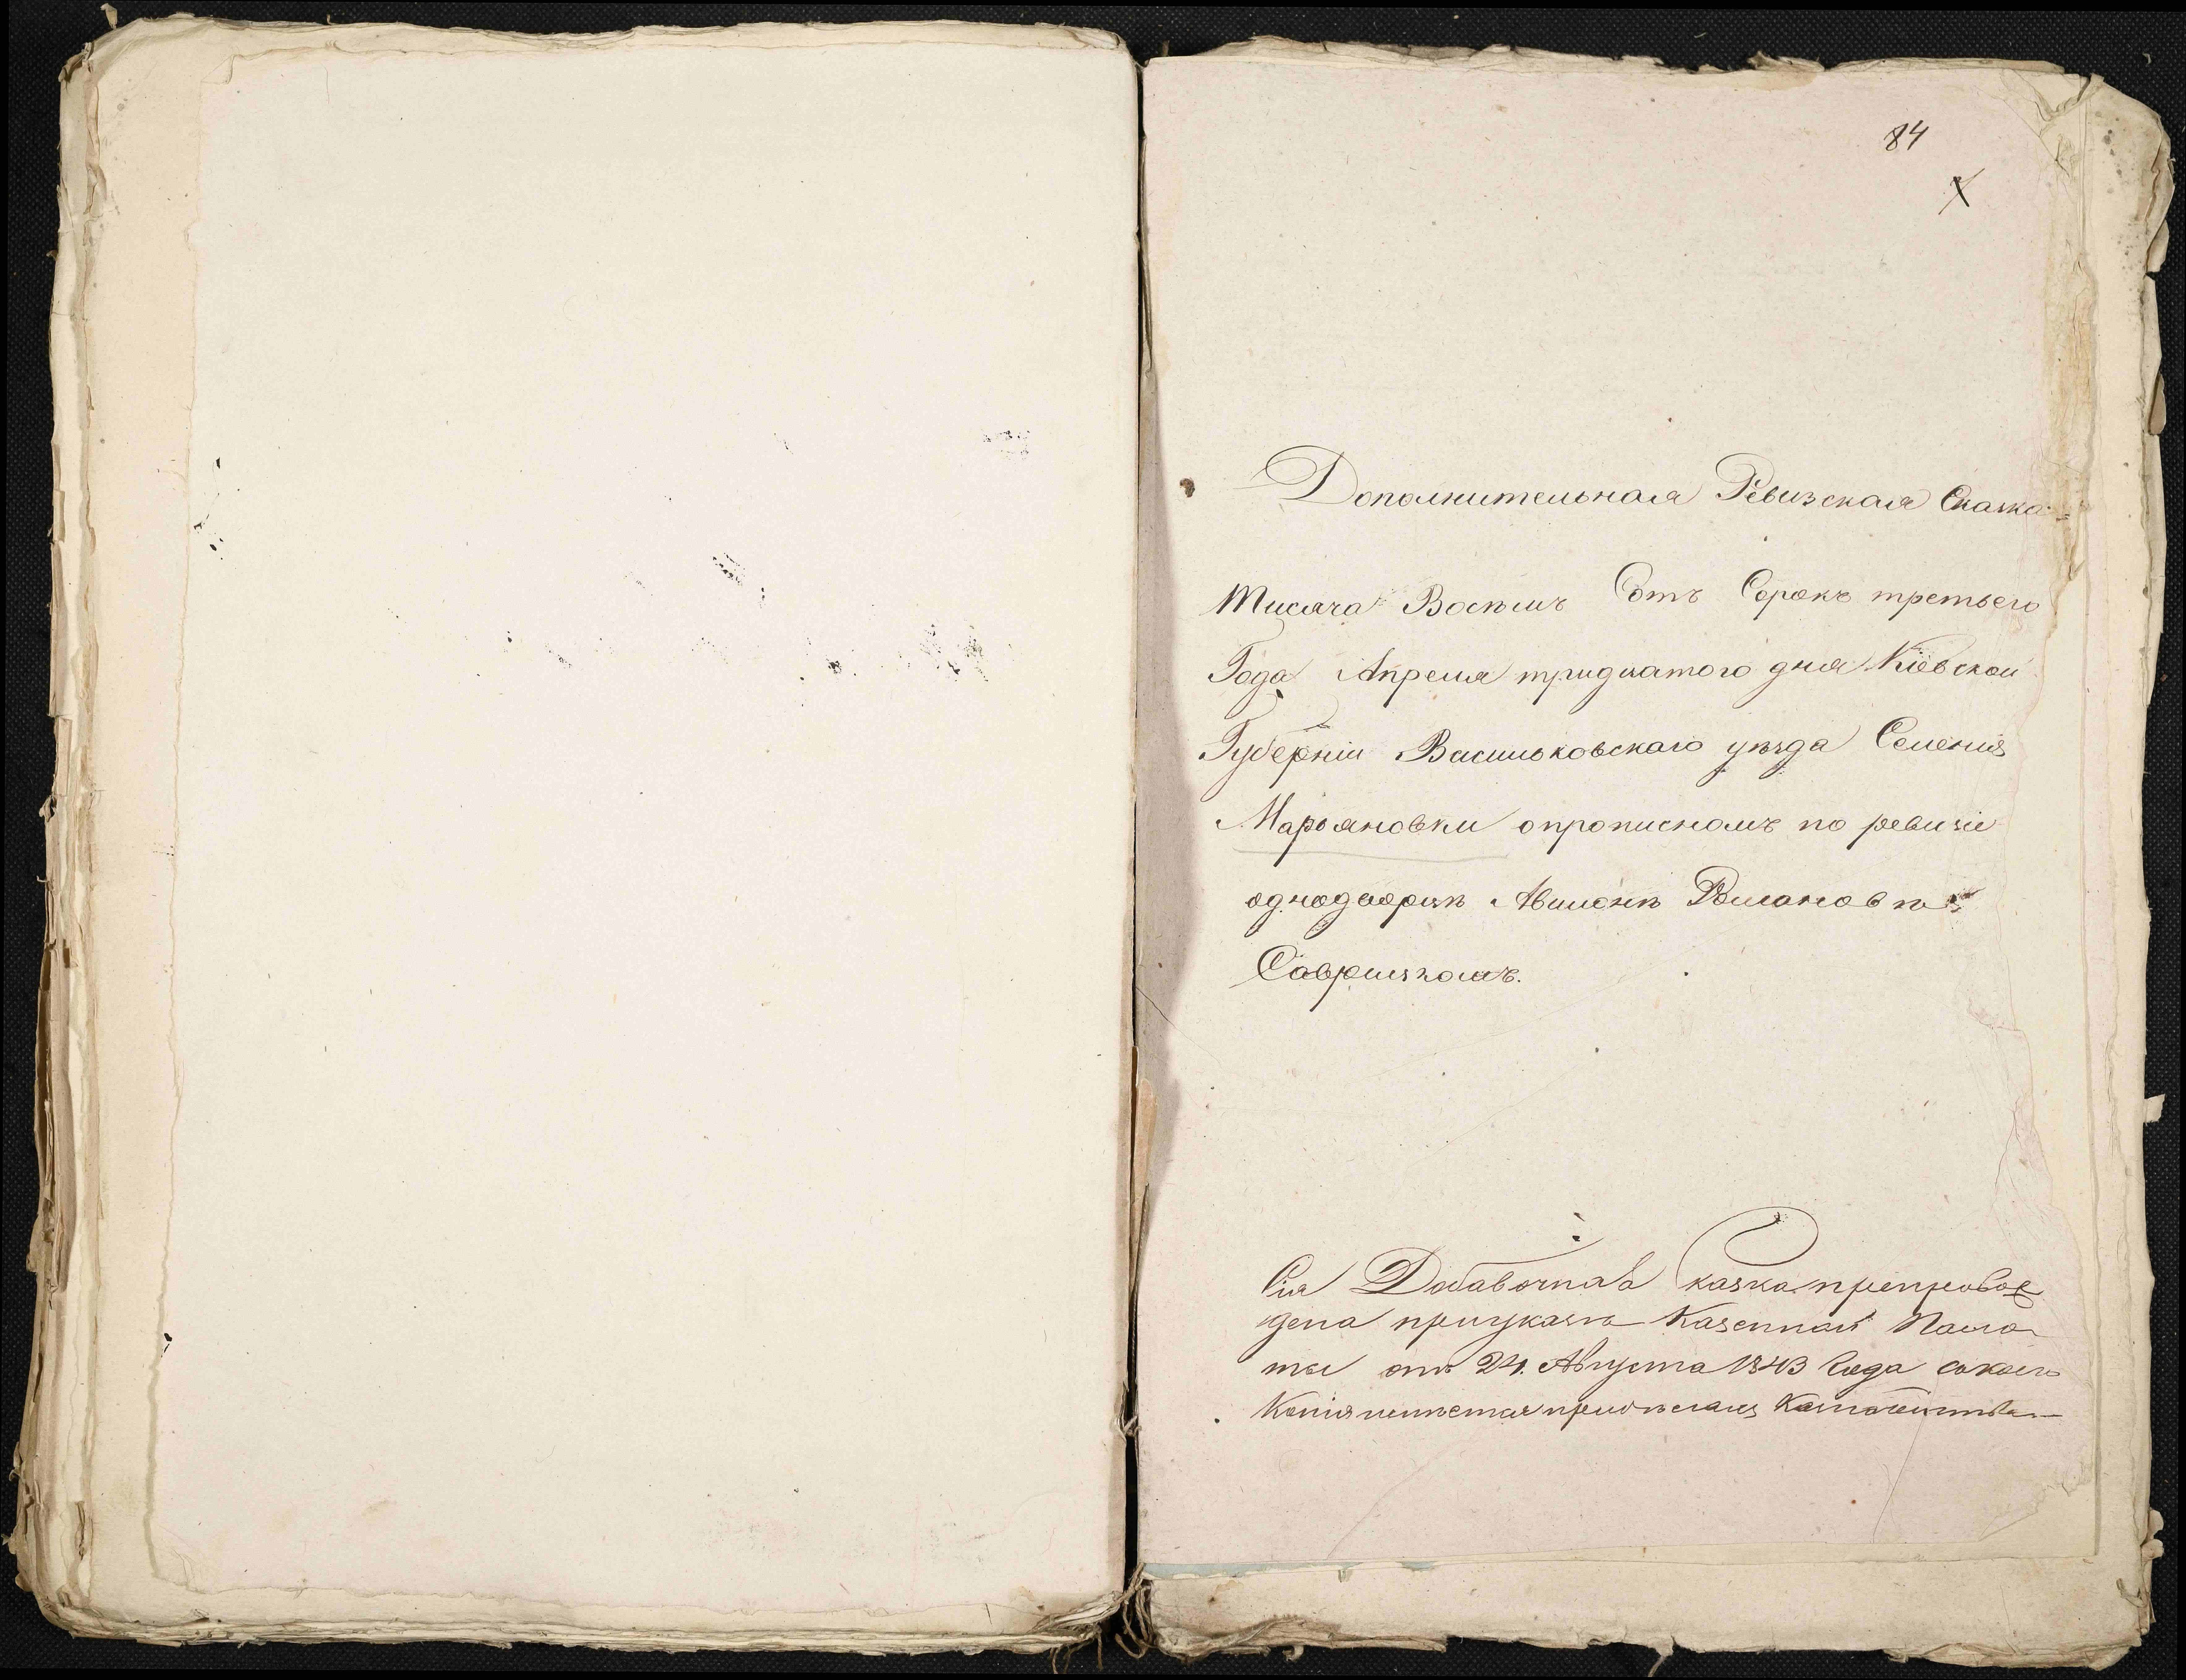 84
Дополнительная Ревизская Сказка
тисяча Восемь Сотъ Сорокъ третьего
Года Апреля тридцатого дня Кіевской
Губерніи Васильковскаго уѣзда Селенія
Марьяновки опрописномъ по ревизіи
однодворцѣ Романовѣ
Сія Добавочная сказка препровож
дена приуказѣ Казенной Пала
ты отъ 24. Августа 1843 Года скоего
Копія